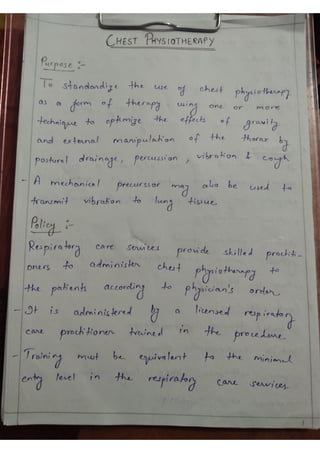 CHEST PHYSIOTHERAPY
Purpose :-
To standardize the use of chest physiotherapy
as a form of therapy using one or more
technique to optimize the effects of gravity
and external manipulation of the thorax by
postural drainage, percussion, vibration & cough
- A mechanical precurssor may also be used to
transmit vibration to lung tissue.
Policy :-
Respiratory care services provide skilled practiti-
oners to administer chest physiotherapy to
the patients according to physician's order.
- It is administered by a licensed respiratory
care practitioner trained in the procedure.
- Training must be equivalent to the minimal
entry level in the respiratory care services.